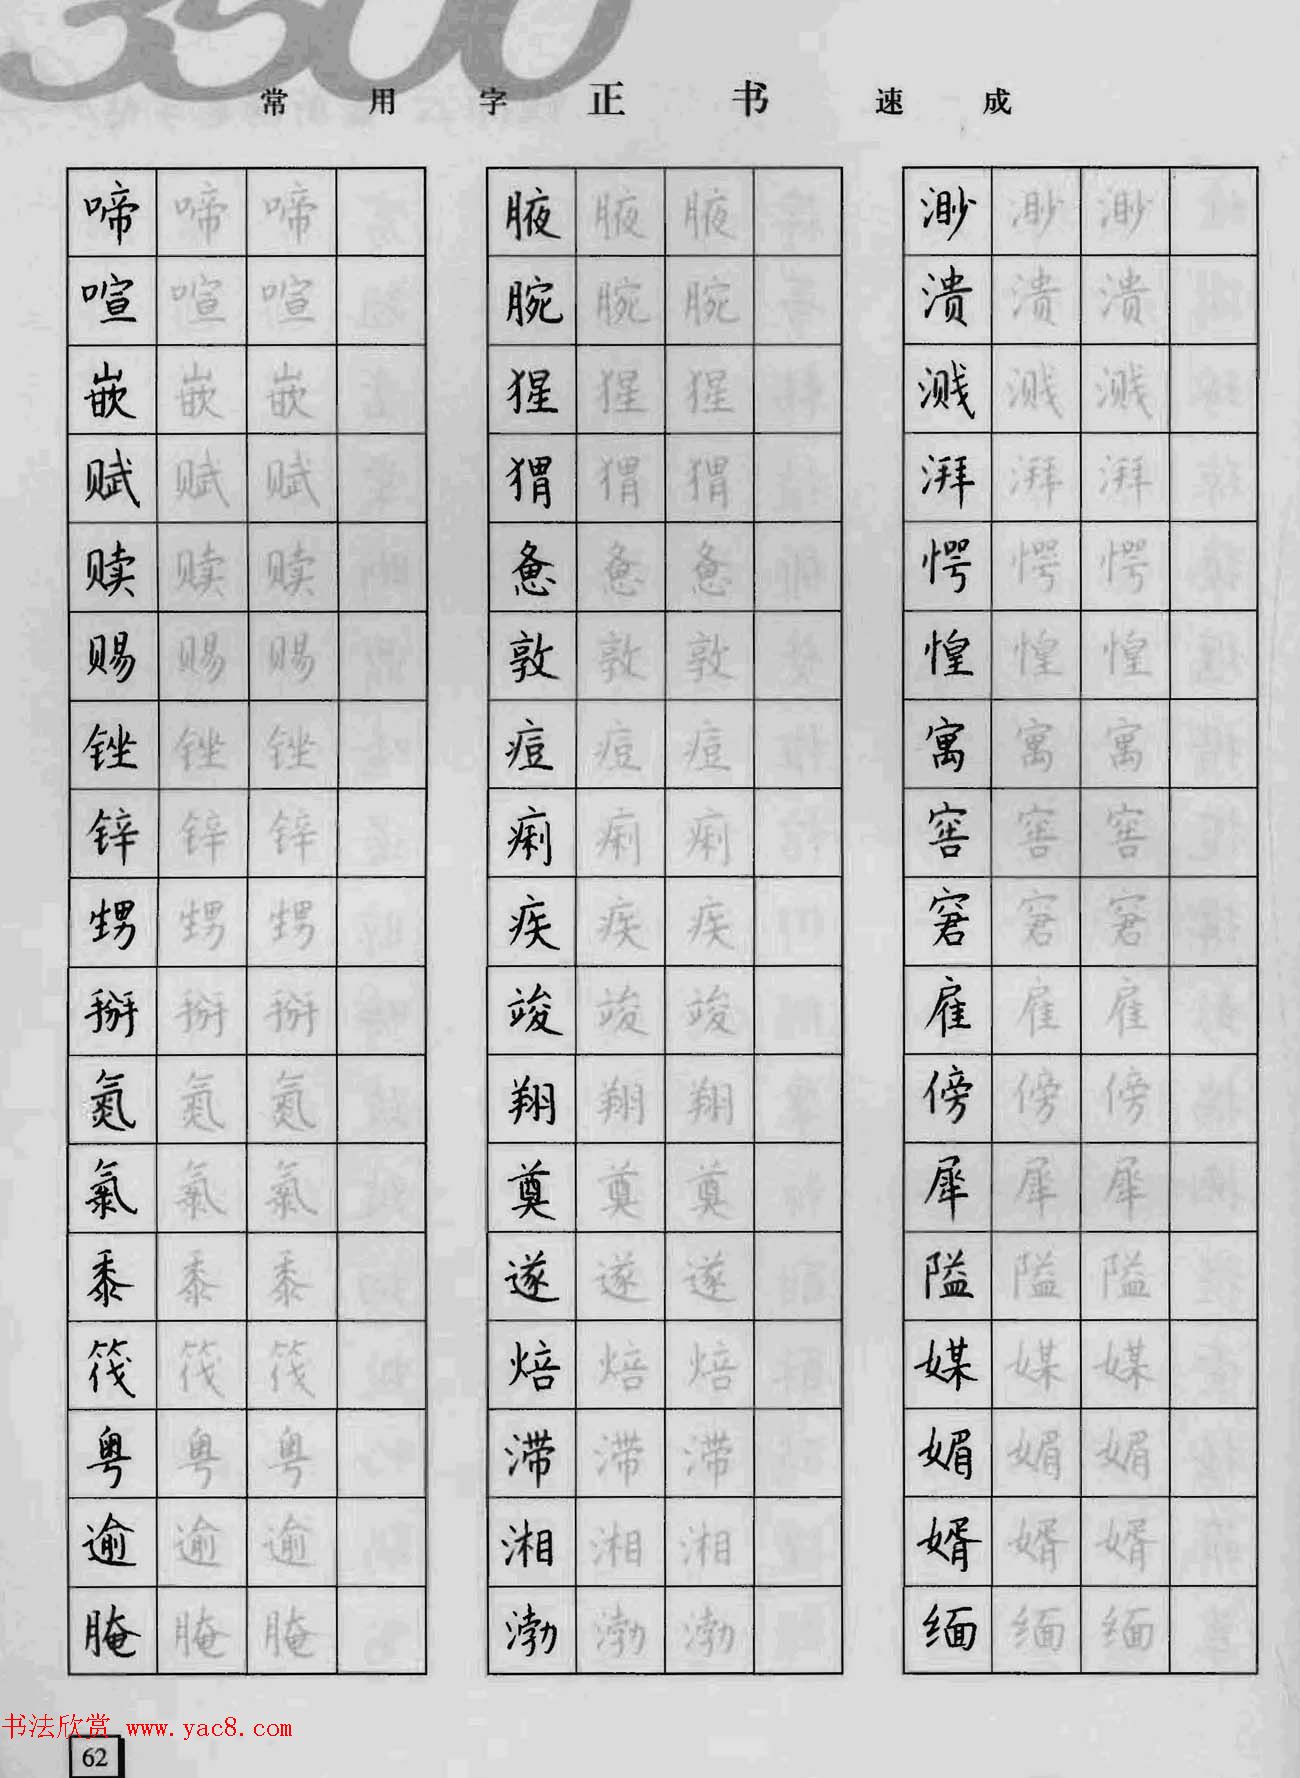 3500
常用字正书速成
啼 啼 啼
喧 喧 喧
嵌 嵌 嵌
赋 赋 赋
赎 赎 赎
赐 赐 赐
锉 锉 锉
锌 锌 锌
甥 甥 甥
掰 掰 掰
氮 氮 氮
氯 氯 氯
黍 黍 黍
筏 筏 筏
粤 粤 粤
逾 逾 逾
腌 腌 腌
腋 腋 腋
腕 腕 腕
猩 猩 猩
猬 猬 猬
惫 惫 惫
敦 敦 敦
痘 痘 痘
痢 痢 痢
痪 痪 痪
竣 竣 竣
翔 翔 翔
奠 奠 奠
遂 遂 遂
焙 焙 焙
滞 滞 滞
湘 湘 湘
渤 渤 渤
渺 渺 渺
溃 溃 溃
溅 溅 溅
湃 湃 湃
愕 愕 愕
惶 惶 惶
寓 寓 寓
窖 窖 窖
窘 窘 窘
雇 雇 雇
傍 傍 傍
犀 犀 犀
隘 隘 隘
媒 媒 媒
媚 媚 媚
婿 婿 婿
缅 缅 缅
书法欣赏 www.yac8.com
62